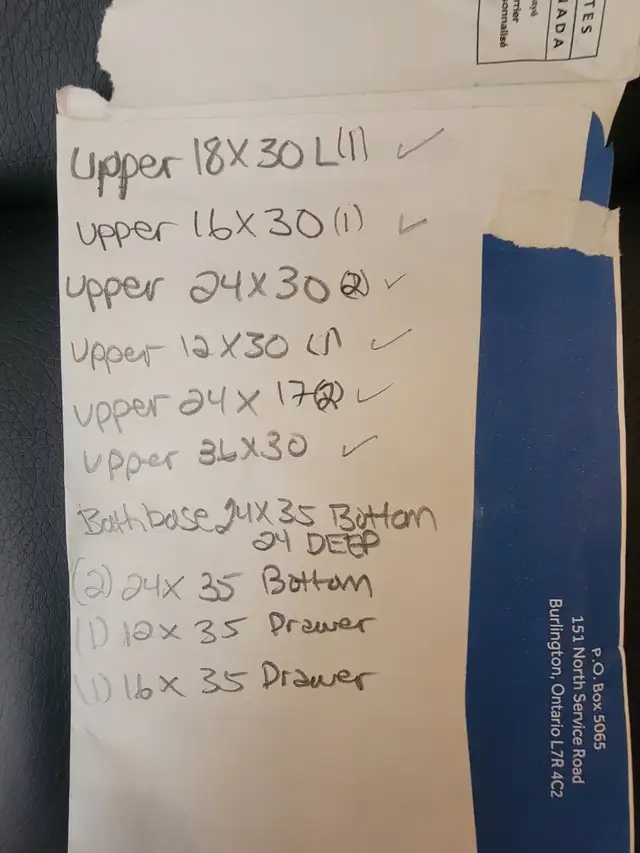 TES
NADA
ayé
rrier
onnalisé
Upper 18X30 L(1) ✓
upper 16X30 (1) ✓
upper 24X30 (2) ✓
upper 12X30 (1) ✓
upper 24X 17(2) ✓
upper 36X30 ✓
Bathbase 24X35 Bottom
24 DEEP
(2) 24X 35 Bottom
(1) 12X 35 Drawer
(1) 16X 35 Drawer
P.O. Box 5065
151 North Service Road
Burlington, Ontario L7R 4C2